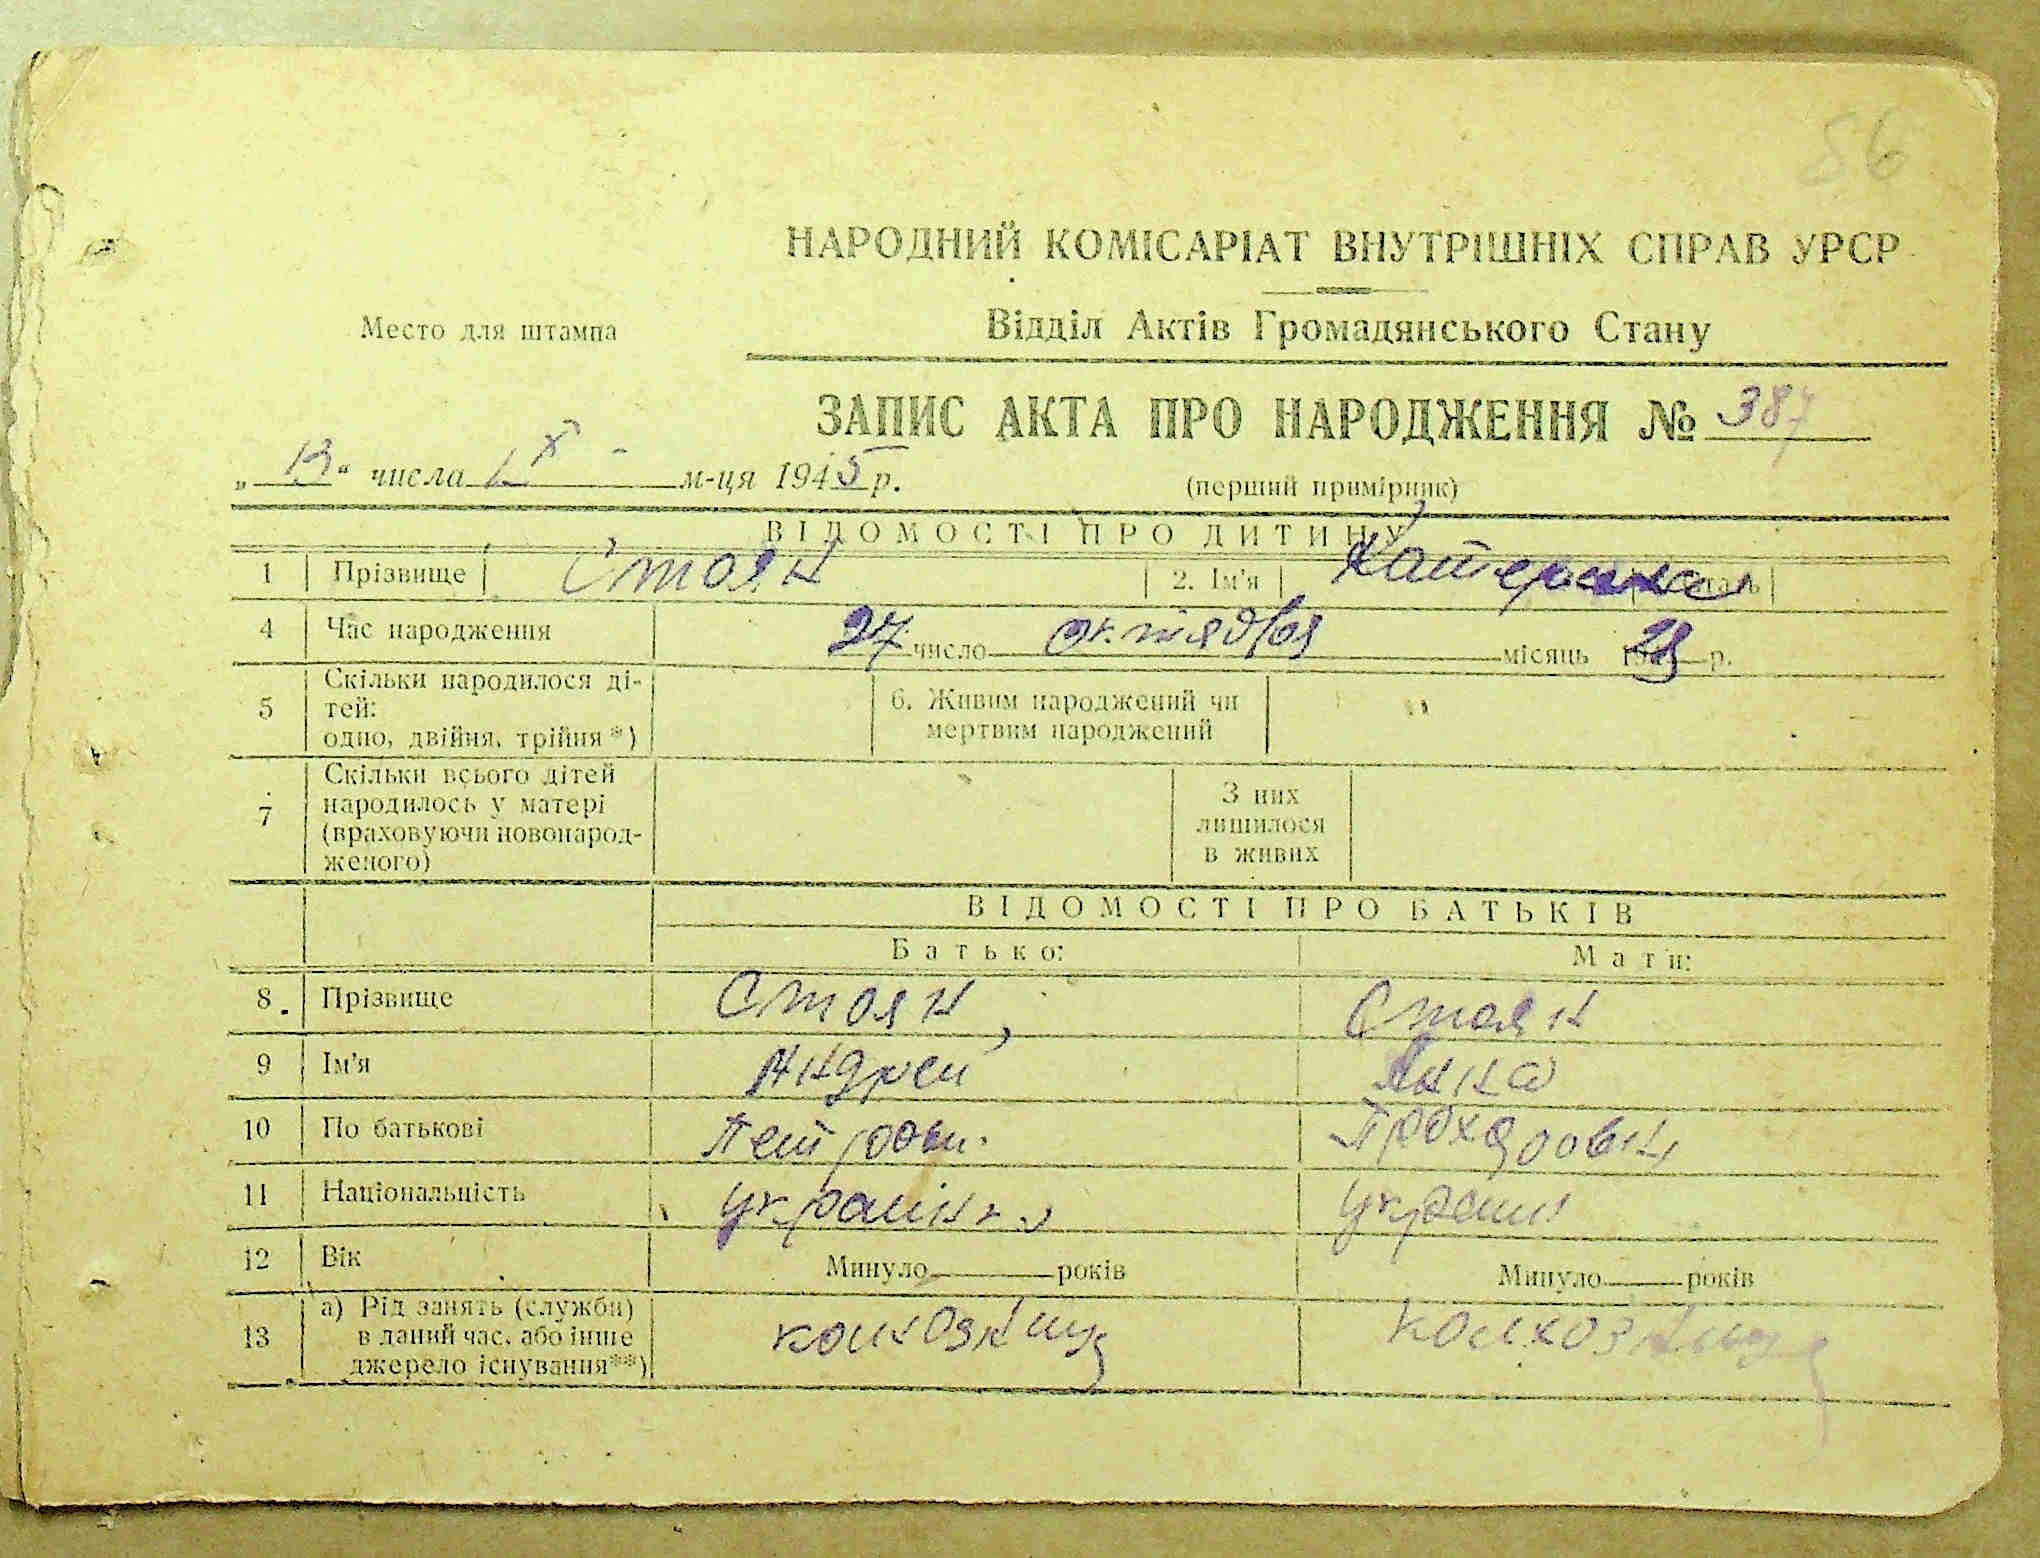 86
НАРОДНИЙ КОМІСАРІАТ ВНУТРІШНІХ СПРАВ УРСР
Место для штампа
Відділ Актів Громадянського Стану
ЗАПИС АКТА ПРО НАРОДЖЕННЯ № 387
„13“ числа IX м-ця 1945 р.
(перший примірник)
ВІДОМОСТІ ПРО ДИТИНУ
1 Прізвище Стоян 2. Ім'я Катерина
4 Час народження 27 число октября місяць 1928 р.
5 Скільки народилося ді-
тей:
одно, двійня, трійня*)
6. Живим народжений чи
мертвим народжений
7 Скільки всього дітей
народилось у матері
(враховуючи новонарод-
женого)
З них
лишилося
в живих
ВІДОМОСТІ ПРО БАТЬКІВ
Батько: Мати:
8. Прізвище Стоян Стоян
9 Ім'я Андрей Анна
10 По батькові Петрови.
11 Національність украин
12 Вік Минуло років Минуло років
13 а) Рід занять (служби)
в даний час, або інше
джерело існування**)